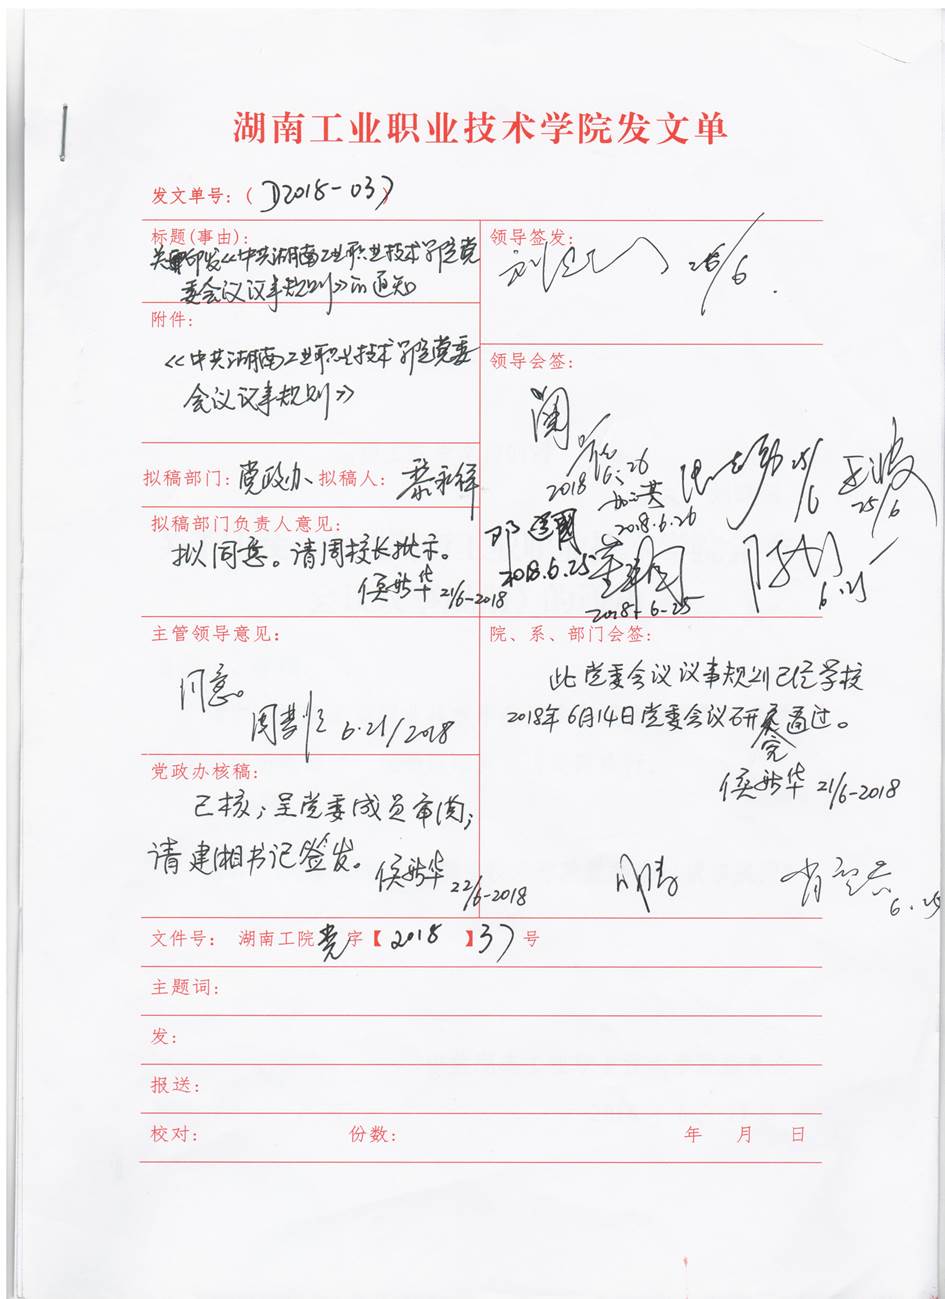 湖南工业职业技术学院发文单
发文单号：（D2018-037）
标题(事由)：
关于印发《中共湖南工业职业技术学院党
委会议议事规则》的通知
领导签发：
26/6.
附件：
《中共湖南工业职业技术学院党委
会议议事规则》
领导会签：
2018.6.26
2018.6.26
25/6
25/6
邓建国
2018.6.25
2018-6-25
6.25
拟稿部门：党政办 拟稿人：
拟稿部门负责人意见：
拟同意。请周校长批示。
21/6-2018
主管领导意见：
同意。
6.21/2018
院、系、部门会签：
此党委会议议事规则已经学校
2018年6月14日党委会议研究通过。
21/6-2018
6.25
党政办核稿：
已核；呈党委成员审阅；
请建湘书记签发。
22/6-2018
文件号： 湖南工院党字【2018】37号
主题词：
发：
报送：
校对： 份数： 年 月 日